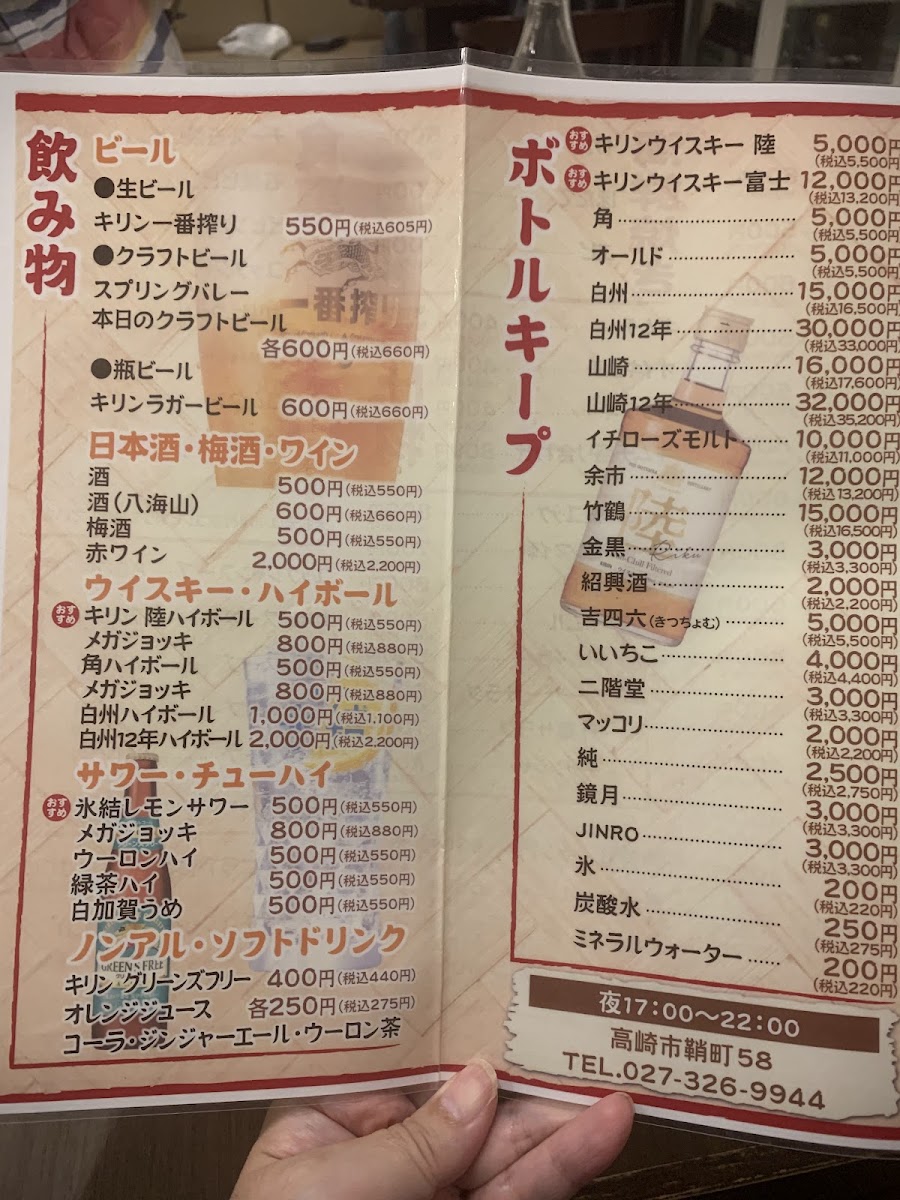 飲み物
ビール
●生ビール
キリン一番搾り 550円(税込605円)
●クラフトビール
スプリングバレー
本日のクラフトビール
各600円(税込660円)
●瓶ビール
キリンラガービール 600円(税込660円)
日本酒・梅酒・ワイン
酒 500円(税込550円)
酒(八海山) 600円(税込660円)
梅酒 500円(税込550円)
赤ワイン 2,000円(税込2,200円)
ウイスキー・ハイボール
おすすめ キリン 陸ハイボール 500円(税込550円)
メガジョッキ 800円(税込880円)
角ハイボール 500円(税込550円)
メガジョッキ 800円(税込880円)
白州ハイボール 1,000円(税込1,100円)
白州12年ハイボール 2,000円(税込2,200円)
サワー・チューハイ
おすすめ 氷結レモンサワー 500円(税込550円)
メガジョッキ 800円(税込880円)
ウーロンハイ 500円(税込550円)
緑茶ハイ 500円(税込550円)
白加賀うめ 500円(税込550円)
ノンアル・ソフトドリンク
キリン グリーンズフリー 400円(税込440円)
オレンジジュース 各250円(税込275円)
コーラ・ジンジャーエール・ウーロン茶
一番搾り
GREEN'S FREE
ボトルキープ
おすすめ キリンウイスキー 陸 5,000円(税込5,500円)
おすすめ キリンウイスキー富士 12,000円(税込13,200円)
角 5,000円(税込5,500円)
オールド 5,000円(税込5,500円)
白州 15,000円(税込16,500円)
白州12年 30,000円(税込33,000円)
山崎 16,000円(税込17,600円)
山崎12年 32,000円(税込35,200円)
イチローズモルト 10,000円(税込11,000円)
余市 12,000円(税込13,200円)
竹鶴 15,000円(税込16,500円)
金黒 3,000円(税込3,300円)
紹興酒 2,000円(税込2,200円)
吉四六(きつちょむ) 5,000円(税込5,500円)
いいちこ 4,000円(税込4,400円)
二階堂 3,000円(税込3,300円)
マッコリ 2,000円(税込2,200円)
純 2,500円(税込2,750円)
鏡月 3,000円(税込3,300円)
JINRO 3,000円(税込3,300円)
氷 200円(税込220円)
炭酸水 250円(税込275円)
ミネラルウォーター 200円(税込220円)
陸
Chill Filtered
夜17:00〜22:00
高崎市鞘町58
TEL.027-326-9944